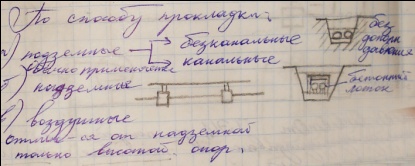 По способу прокладки:
а) подземные → безканальные
→ канальные
обычно применяется
б) надземные
в) воздушные
отлич-ся от надземной
только высотой опор.
без
допол.
давания
бетонный
лоток